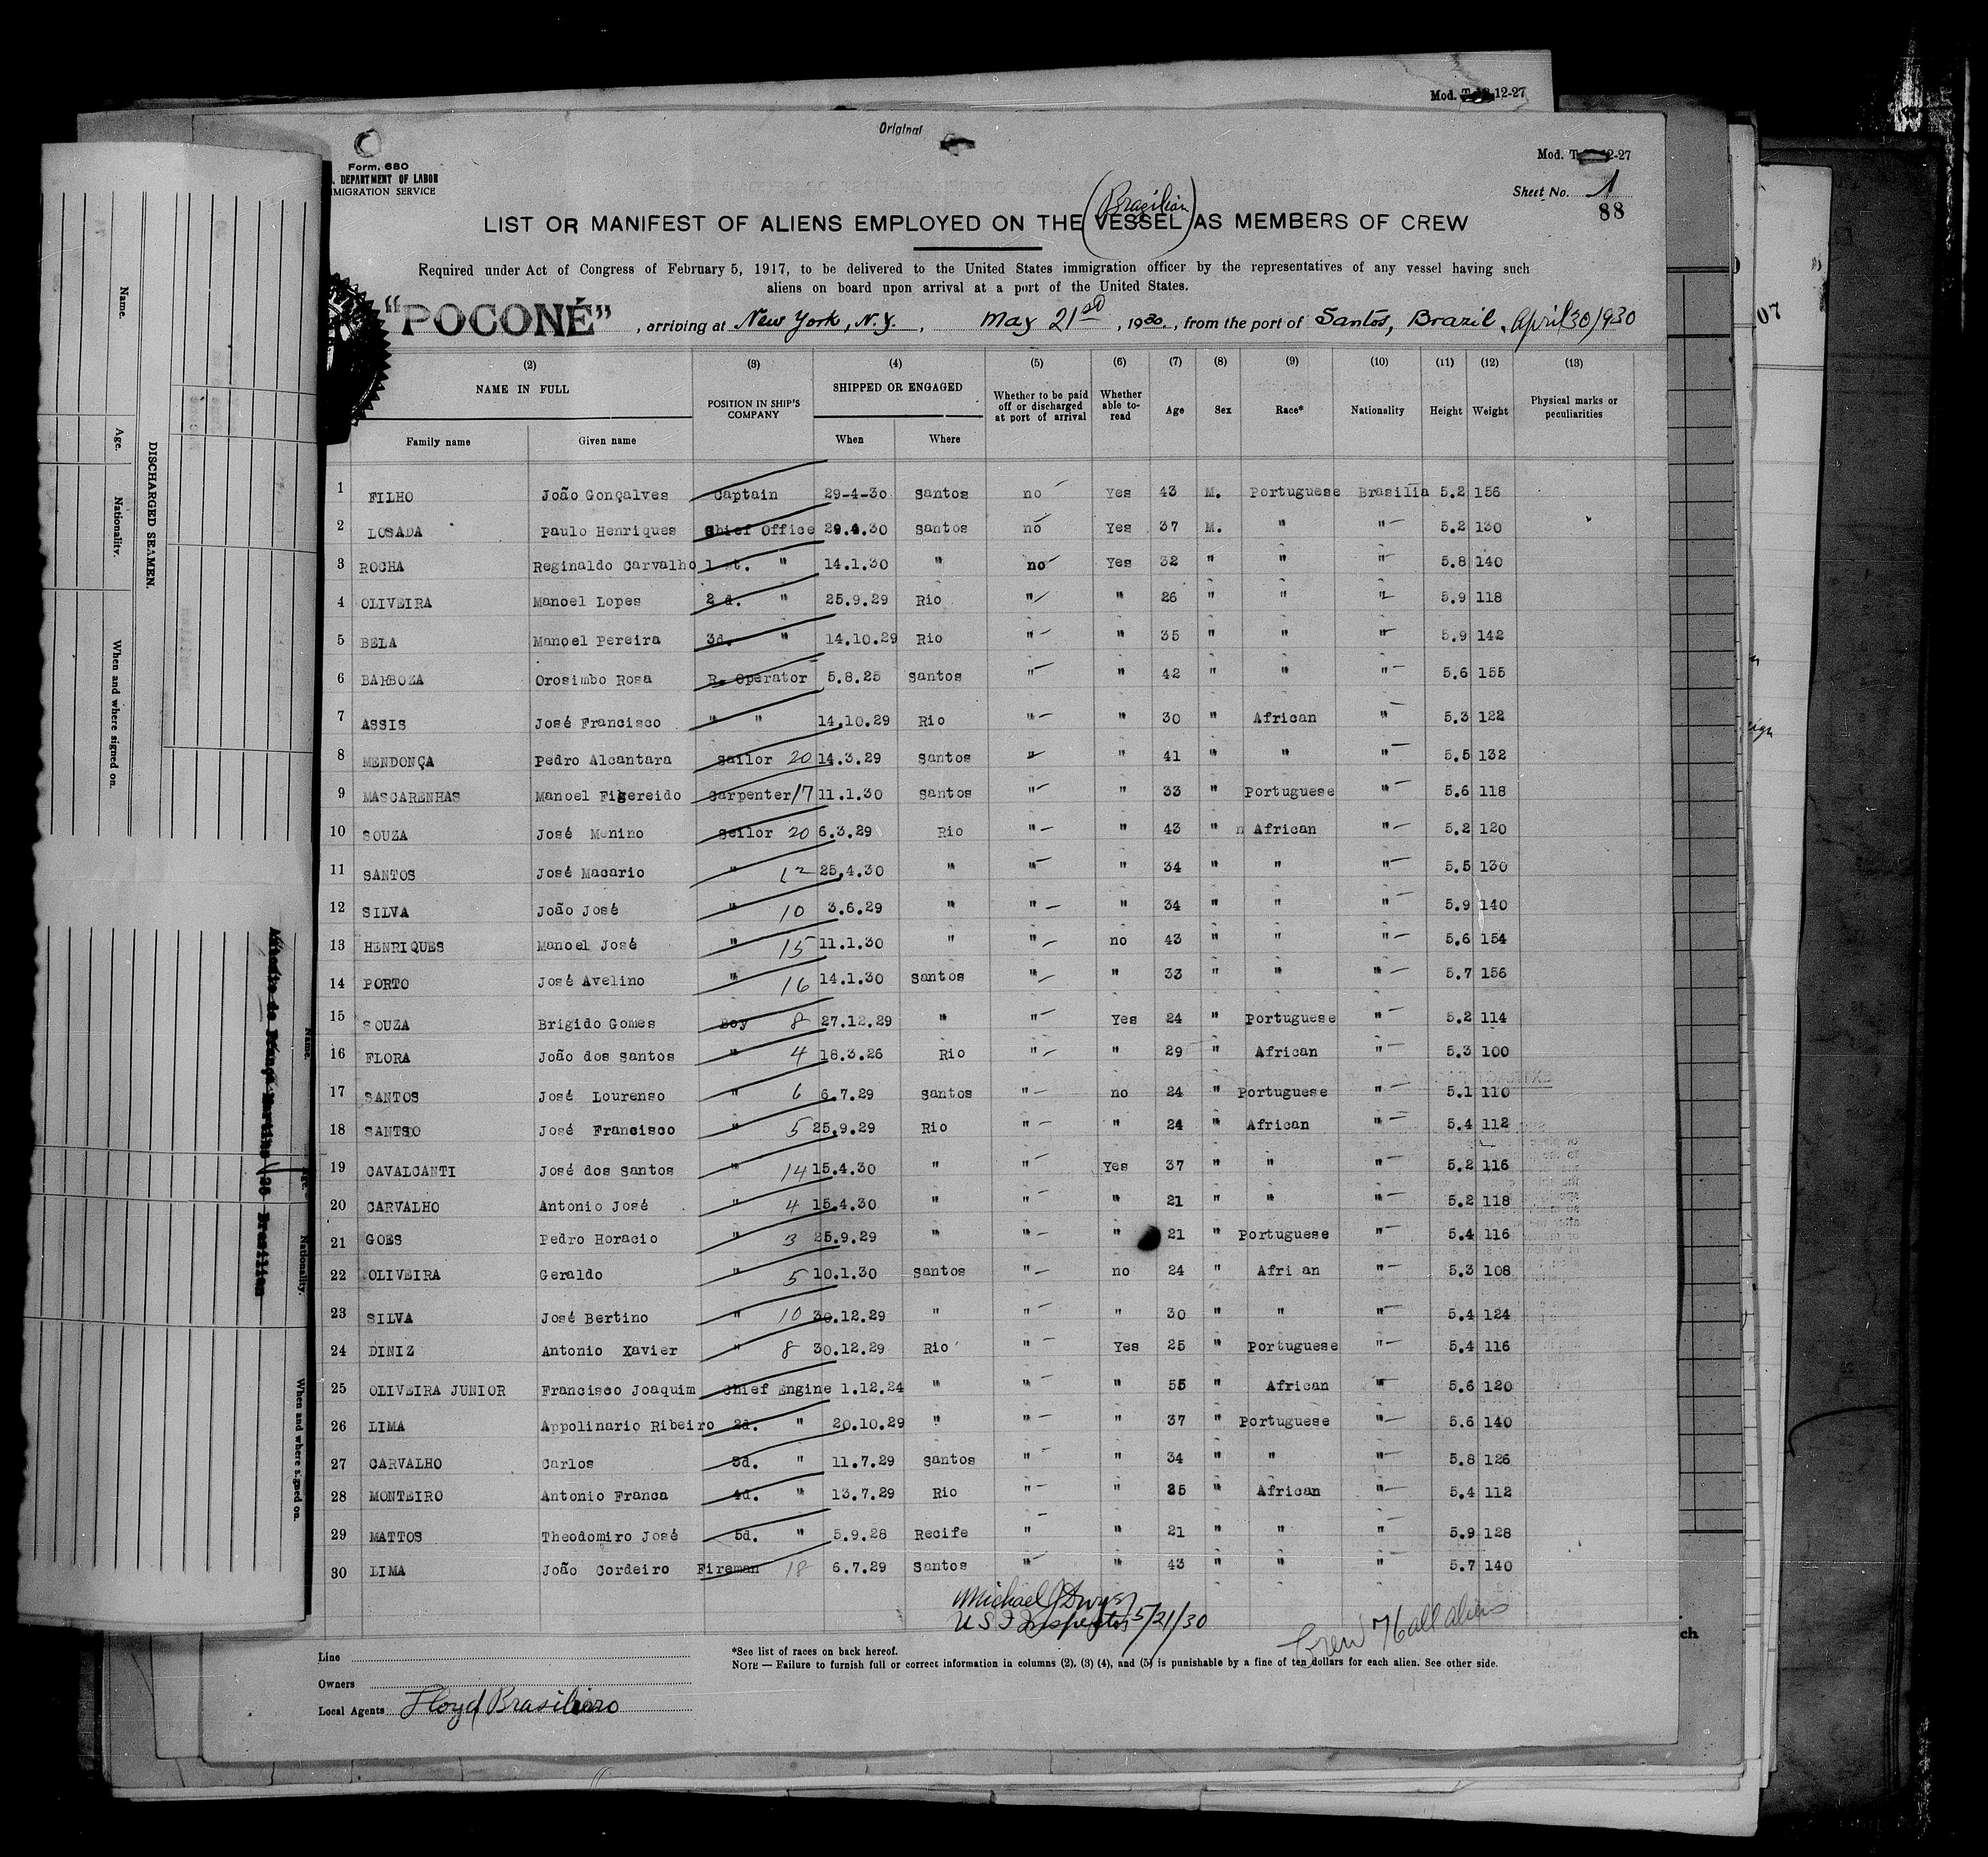 Mod. 12-27
Original
Mod. T- 12-27
Form. 680
DEPARTMENT OF LABOR
MIGRATION SERVICE
Sheet No. 1
88
(Brazilian)
LIST OR MANIFEST OF ALIENS EMPLOYED ON THE VESSEL AS MEMBERS OF CREW
Required under Act of Congress of February 5, 1917, to be delivered to the United States immigration officer by the representatives of any vessel having such
aliens on board upon arrival at a port of the United States.
"POCONÉ", arriving at New York, N.Y., May 21st, 1930, from the port of Santos, Brazil, April 30/930
(2) (3) (4) (5) (6) (7) (8) (9) (10) (11) (12) (13)
NAME IN FULL POSITION IN SHIP'S COMPANY SHIPPED OR ENGAGED Whether to be paid off or discharged at port of arrival Whether able to- read Age Sex Race* Nationality Height Weight Physical marks or peculiarities
Family name Given name When Where
1 FILHO João Gonçalves Captain 29-4-30 Santos no Yes 43 M. Portuguese Brasilia 5.2 156
2 LOSADA Paulo Henriques Chief Office 29.4.30 Santos no Yes 37 M. " " 5.2 130
3 ROCHA Reginaldo Carvalho 1 st. " 14.1.30 " no Yes 32 " " " 5.8 140
4 OLIVEIRA Manoel Lopes 2 d. " 25.9.29 Rio " " 26 " " " 5.9 118
5 BELA Manoel Pereira 3d. " 14.10.29 Rio " " 35 " " " 5.9 142
6 BARBOZA Orosimbo Rosa R. Operator 5.8.25 Santos " " 42 " " " 5.6 155
7 ASSIS José Francisco " " 14.10.29 Rio " " 30 " African " 5.3 122
8 MENDONÇA Pedro Alcantara Sailor 20 14.3.29 Santos " " 41 " " " 5.5 132
9 MASCARENHAS Manoel Figereido Carpenter 17 11.1.30 Santos " " 33 " Portuguese " 5.6 118
10 SOUZA José Menino Seilor 20 6.3.29 Rio " " 43 " n African " 5.2 120
11 SANTOS José Macario " 12 25.4.30 " " " 34 " " " 5.5 130
12 SILVA João José " 10 3.6.29 " " " 34 " " " 5.9 140
13 HENRIQUES Manoel José " 15 11.1.30 " " no 43 " " " 5.6 154
14 PORTO José Avelino " 16 14.1.30 Santos " " 33 " " " 5.7 156
15 SOUZA Brigido Gomes Boy 8 27.12.29 " " Yes 24 " Portuguese " 5.2 114
16 FLORA João dos Santos " 4 18.3.26 Rio " " 29 " African " 5.3 100
17 SANTOS José Lourenso " 6 6.7.29 Santos " no 24 " Portuguese " 5.1 110
18 SANTSO José Francisco " 5 25.9.29 Rio " " 24 " African " 5.4 112
19 CAVALCANTI José dos Santos " 14 15.4.30 " " Yes 37 " " " 5.2 116
20 CARVALHO Antonio José " 4 15.4.30 " " " 21 " " " 5.2 118
21 GOES Pedro Horacio " 3 25.9.29 " " " 21 " Portuguese " 5.4 116
22 OLIVEIRA Geraldo " 5 10.1.30 Santos " no 24 " Afri an " 5.3 108
23 SILVA José Bertino " 10 30.12.29 " " " 30 " " " 5.4 124
24 DINIZ Antonio Xavier " 8 30.12.29 Rio " Yes 25 " Portuguese " 5.4 116
25 OLIVEIRA JUNIOR Francisco Joaquim Chief Engine 1.12.24 " " " 55 " African " 5.6 120
26 LIMA Appolinario Ribeiro 2d. " 20.10.29 " " " 37 " Portuguese " 5.6 140
27 CARVALHO Carlos 3d. " 11.7.29 Santos " " 34 " " " 5.8 126
28 MONTEIRO Antonio Franca 4d. " 13.7.29 Rio " " 25 " African " 5.4 112
29 MATTOS Theodomiro José 5d. " 5.9.28 Recife " " 21 " " " 5.9 128
30 LIMA João Cordeiro Fireman 18 6.7.29 Santos " " 43 " " " 5.7 140
Michael J Dwyer
U S I Inspector 5/21/30
Crew 76 all aliens
*See list of races on back hereof.
NOTE — Failure to furnish full or correct information in columns (2), (3) (4), and (5) is punishable by a fine of ten dollars for each alien. See other side.
Line
Owners
Local Agents Lloyd Brasileiro
DISCHARGED SEAMEN.
Name. Age. Nationality. When and where signed on.
de França Martins 26 Brasilian
Name. Age. Nationality. When and where signed on.
07
ch